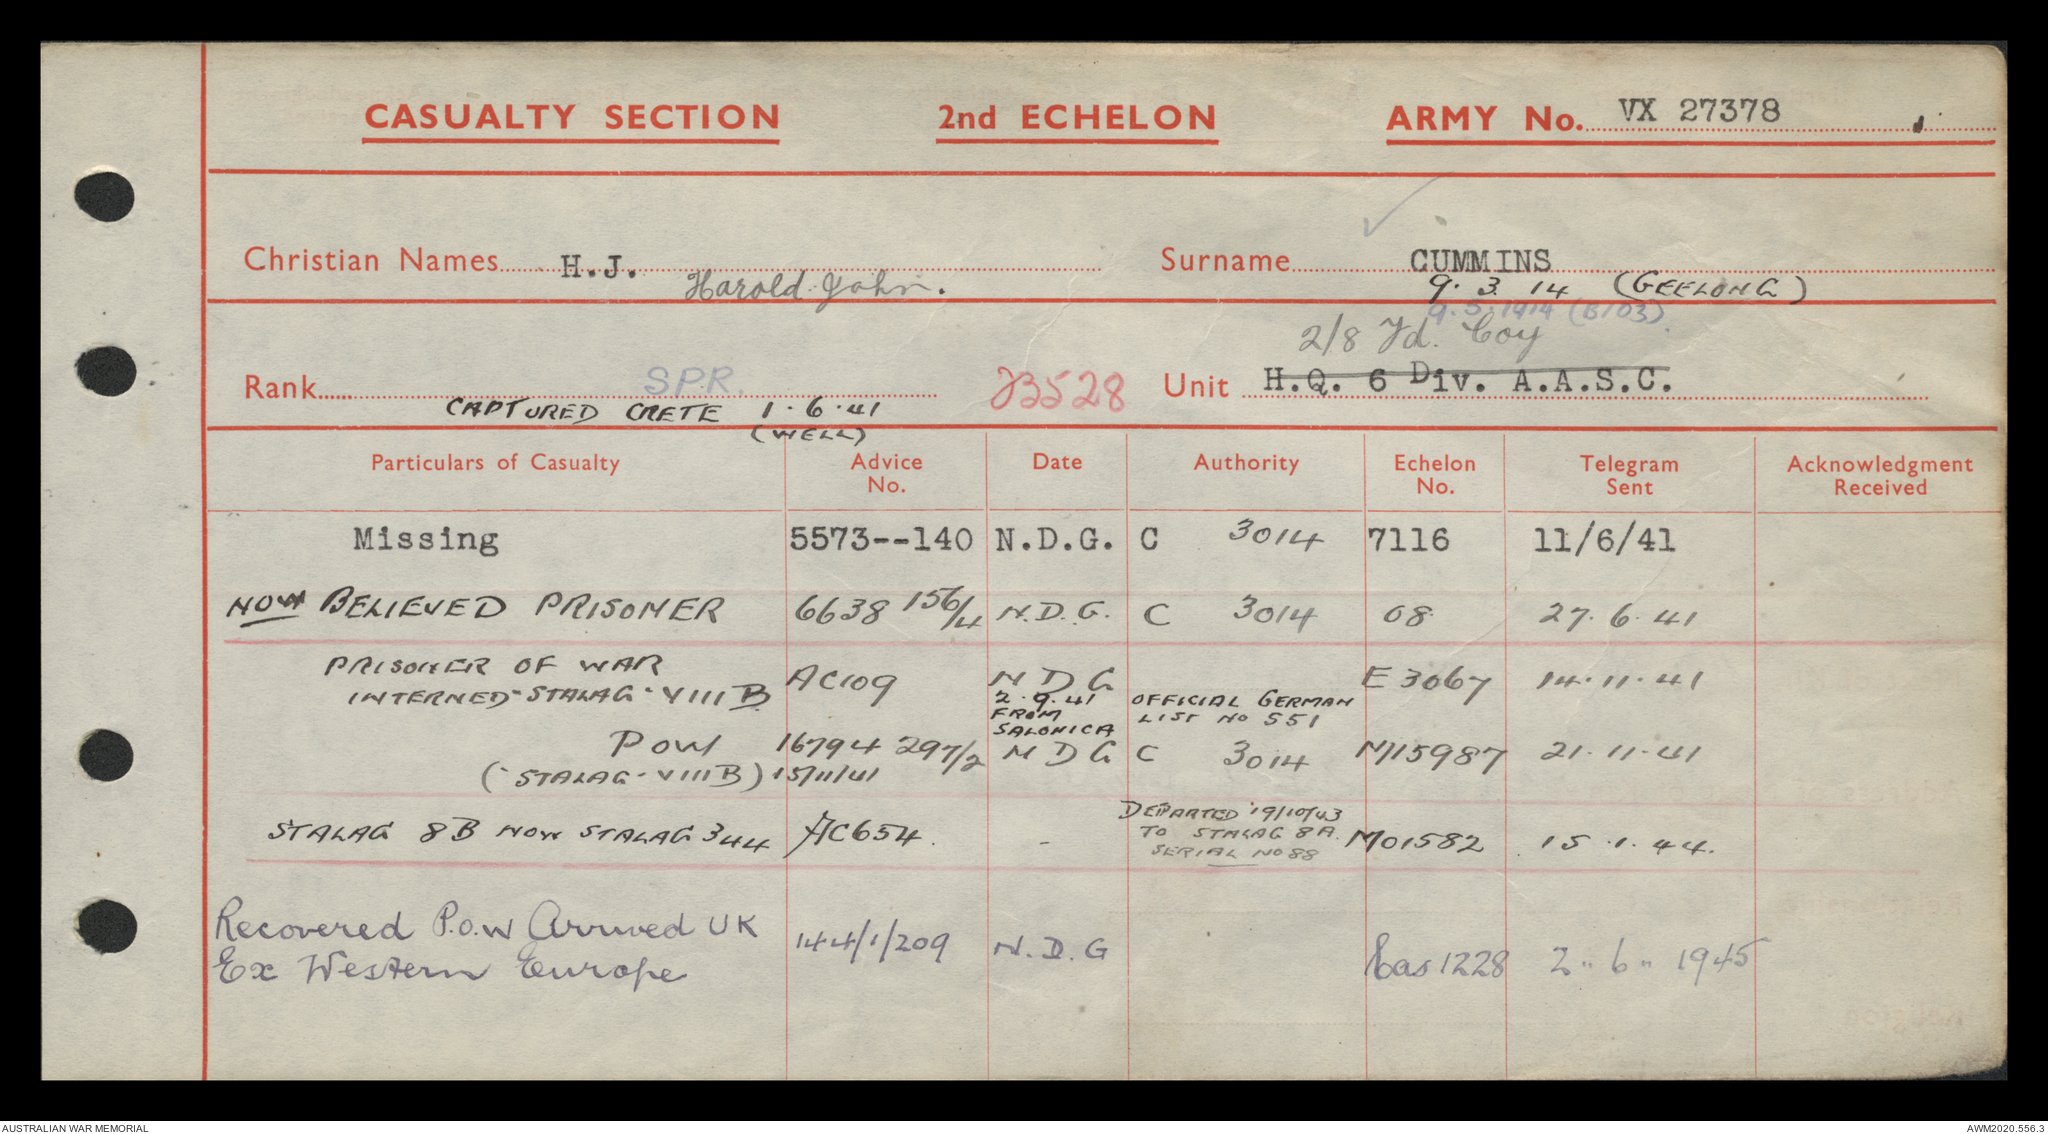 CASUALTY SECTION 2nd ECHELON ARMY No. VX 27378
Christian Names H.J. Surname CUMMINS
Harold John. 9. 3. 14 (GEELONG)
9.5.1914 (B103)
2/8 Fd. Coy
Rank SPR. 23528 Unit H.Q. 6 Div. A.A.S.C.
CAPTURED CRETE 1.6.41
(WELL)
Particulars of Casualty Advice No. Date Authority Echelon No. Telegram Sent Acknowledgment Received
Missing 5573--140 N.D.G. C 3014 7116 11/6/41
NOW BELIEVED PRISONER 6638 156/4 N.D.G. C 3014 08 27.6.41
PRISONER OF WAR AC109 N D G E 3067 14.11.41
INTERNED-STALAG-VIIIB 2.9.41 OFFICIAL GERMAN
FROM LIST No 551
SALONICA
POW 16794 297/2 N D G C 3014 M15987 21.11.41
(-STALAG-VIIIB) 15/11/41
DEPARTED 19/10/43
STALAG 8B NOW STALAG 344 AC654. - TO STALAG 8A. M01582 15.1.44.
SERIAL No 88
Recovered P.O.W Arrived UK 144/1/209 N.D.G Cas 1228 2"6" 1945
Ex Western Europe
AUSTRALIAN WAR MEMORIAL AWM2020.556.3